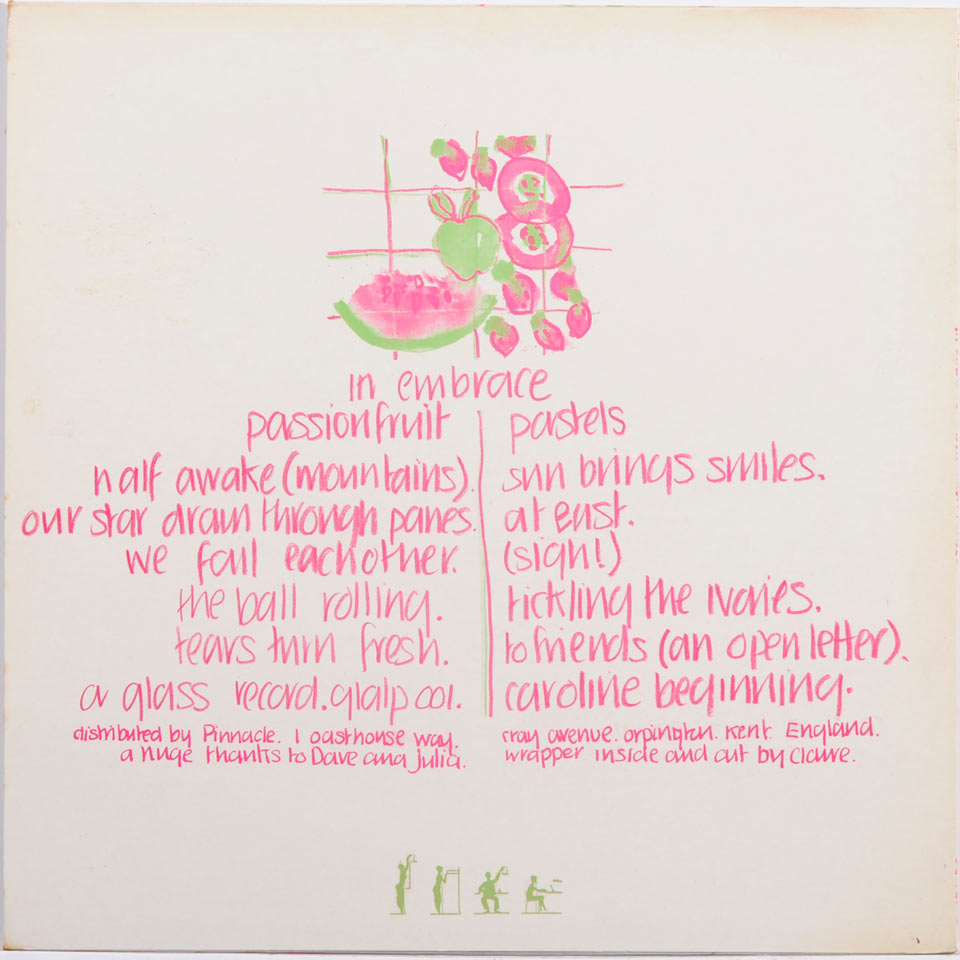 in embrace
passionfruit
half awake (mountains).
our star drawn through panes.
we fall eachother.
the ball rolling.
tears turn fresh.
a glass record. glalp 001.
distributed by Pinnacle. 1 oasthouse way.
a huge thanks to Dave and Julia.
pastels
sun brings smiles.
at east.
(sigh!)
tickling the ivories.
to friends (an open letter).
caroline beginning.
cray avenue. orpington. Kent. England.
wrapper inside and out by Claire.